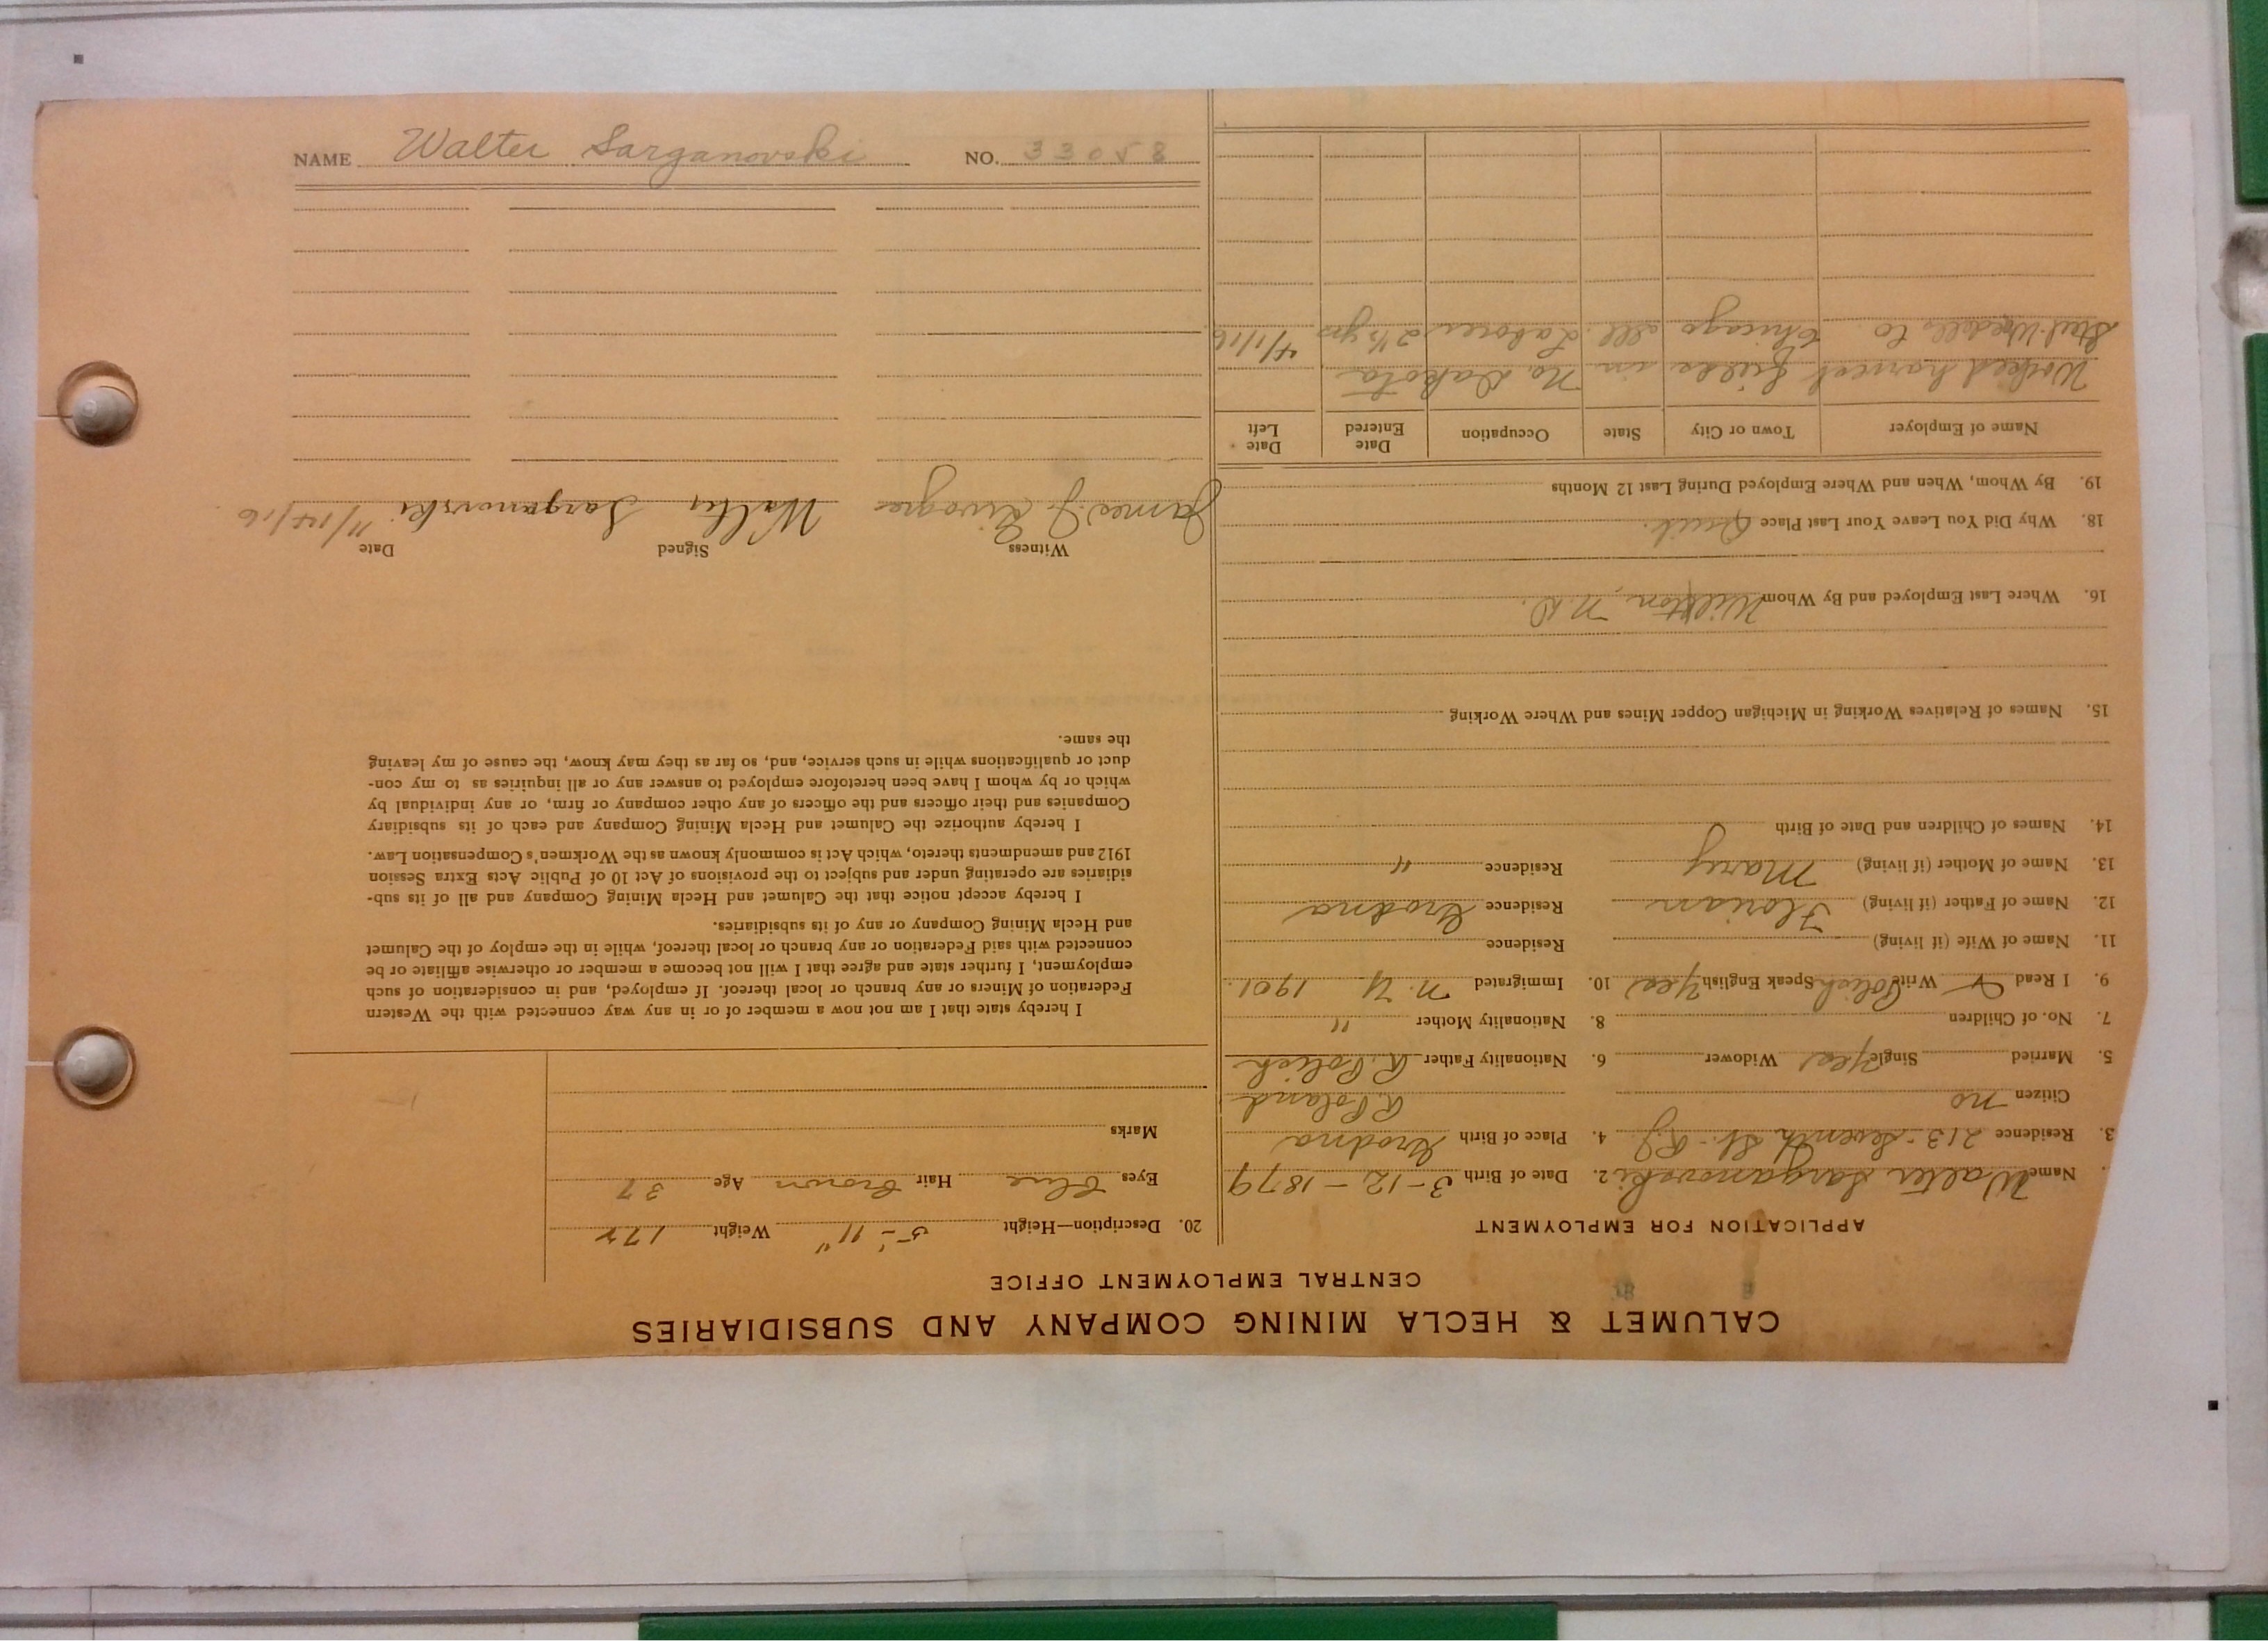 CALUMET & HECLA MINING COMPANY AND SUBSIDIARIES
CENTRAL EMPLOYMENT OFFICE
APPLICATION FOR EMPLOYMENT
Name Walter Sarganovski 2. Date of Birth 3-12-1879
3. Residence 213-Seventh St. R.J. 4. Place of Birth Grodna
Citizen no R. Poland
5. Married Single Yes Widower 6. Nationality Father R. Polish
7. No. of Children 8. Nationality Mother "
9. I Read & Write Polish Speak English Yes 10. Immigrated N.Y. 1901
11. Name of Wife (if living) Residence
12. Name of Father (if living) Florian Residence Grodna
13. Name of Mother (if living) Mary Residence "
14. Names of Children and Date of Birth
15. Names of Relatives Working in Michigan Copper Mines and Where Working
16. Where Last Employed and By Whom Wilton, N.D.
18. Why Did You Leave Your Last Place Quit.
19. By Whom, When and Where Employed During Last 12 Months
Name of Employer Town or City State Occupation Date Entered Date Left
Worked harvest fields in No. Dakota
Chicago Ill Laborer 2 1/2 yrs 4/1/16
20. Description—Height 5'-11" Weight 172
Eyes Blue Hair Brown Age 37
Marks
I hereby state that I am not now a member of or in any way connected with the Western
Federation of Miners or any branch or local thereof. If employed, and in consideration of such
employment, I further state and agree that I will not become a member or otherwise affiliate or be
connected with said Federation or any branch or local thereof, while in the employ of the Calumet
and Hecla Mining Company or any of its subsidiaries.
I hereby accept notice that the Calumet and Hecla Mining Company and all of its sub-
sidiaries are operating under and subject to the provisions of Act 10 of Public Acts Extra Session
1912 and amendments thereto, which Act is commonly known as the Workmen's Compensation Law.
I hereby authorize the Calumet and Hecla Mining Company and each of its subsidiary
Companies and their officers and the officers of any other company or firm, or any individual by
which or by whom I have been heretofore employed to answer any or all inquiries as to my con-
duct or qualifications while in such service, and, so far as they may know, the cause of my leaving
the same.
Witness Signed Date
James J. Walter Sarganovski 11/14/16
NAME Walter Sarganovski NO. 33058